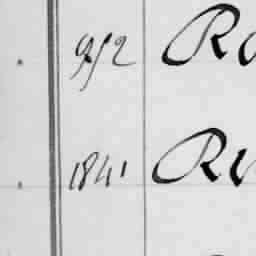 952 Ro
1841 Ru